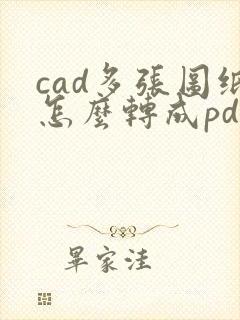 cad多張圖紙
怎麼轉成pd
畢家洼